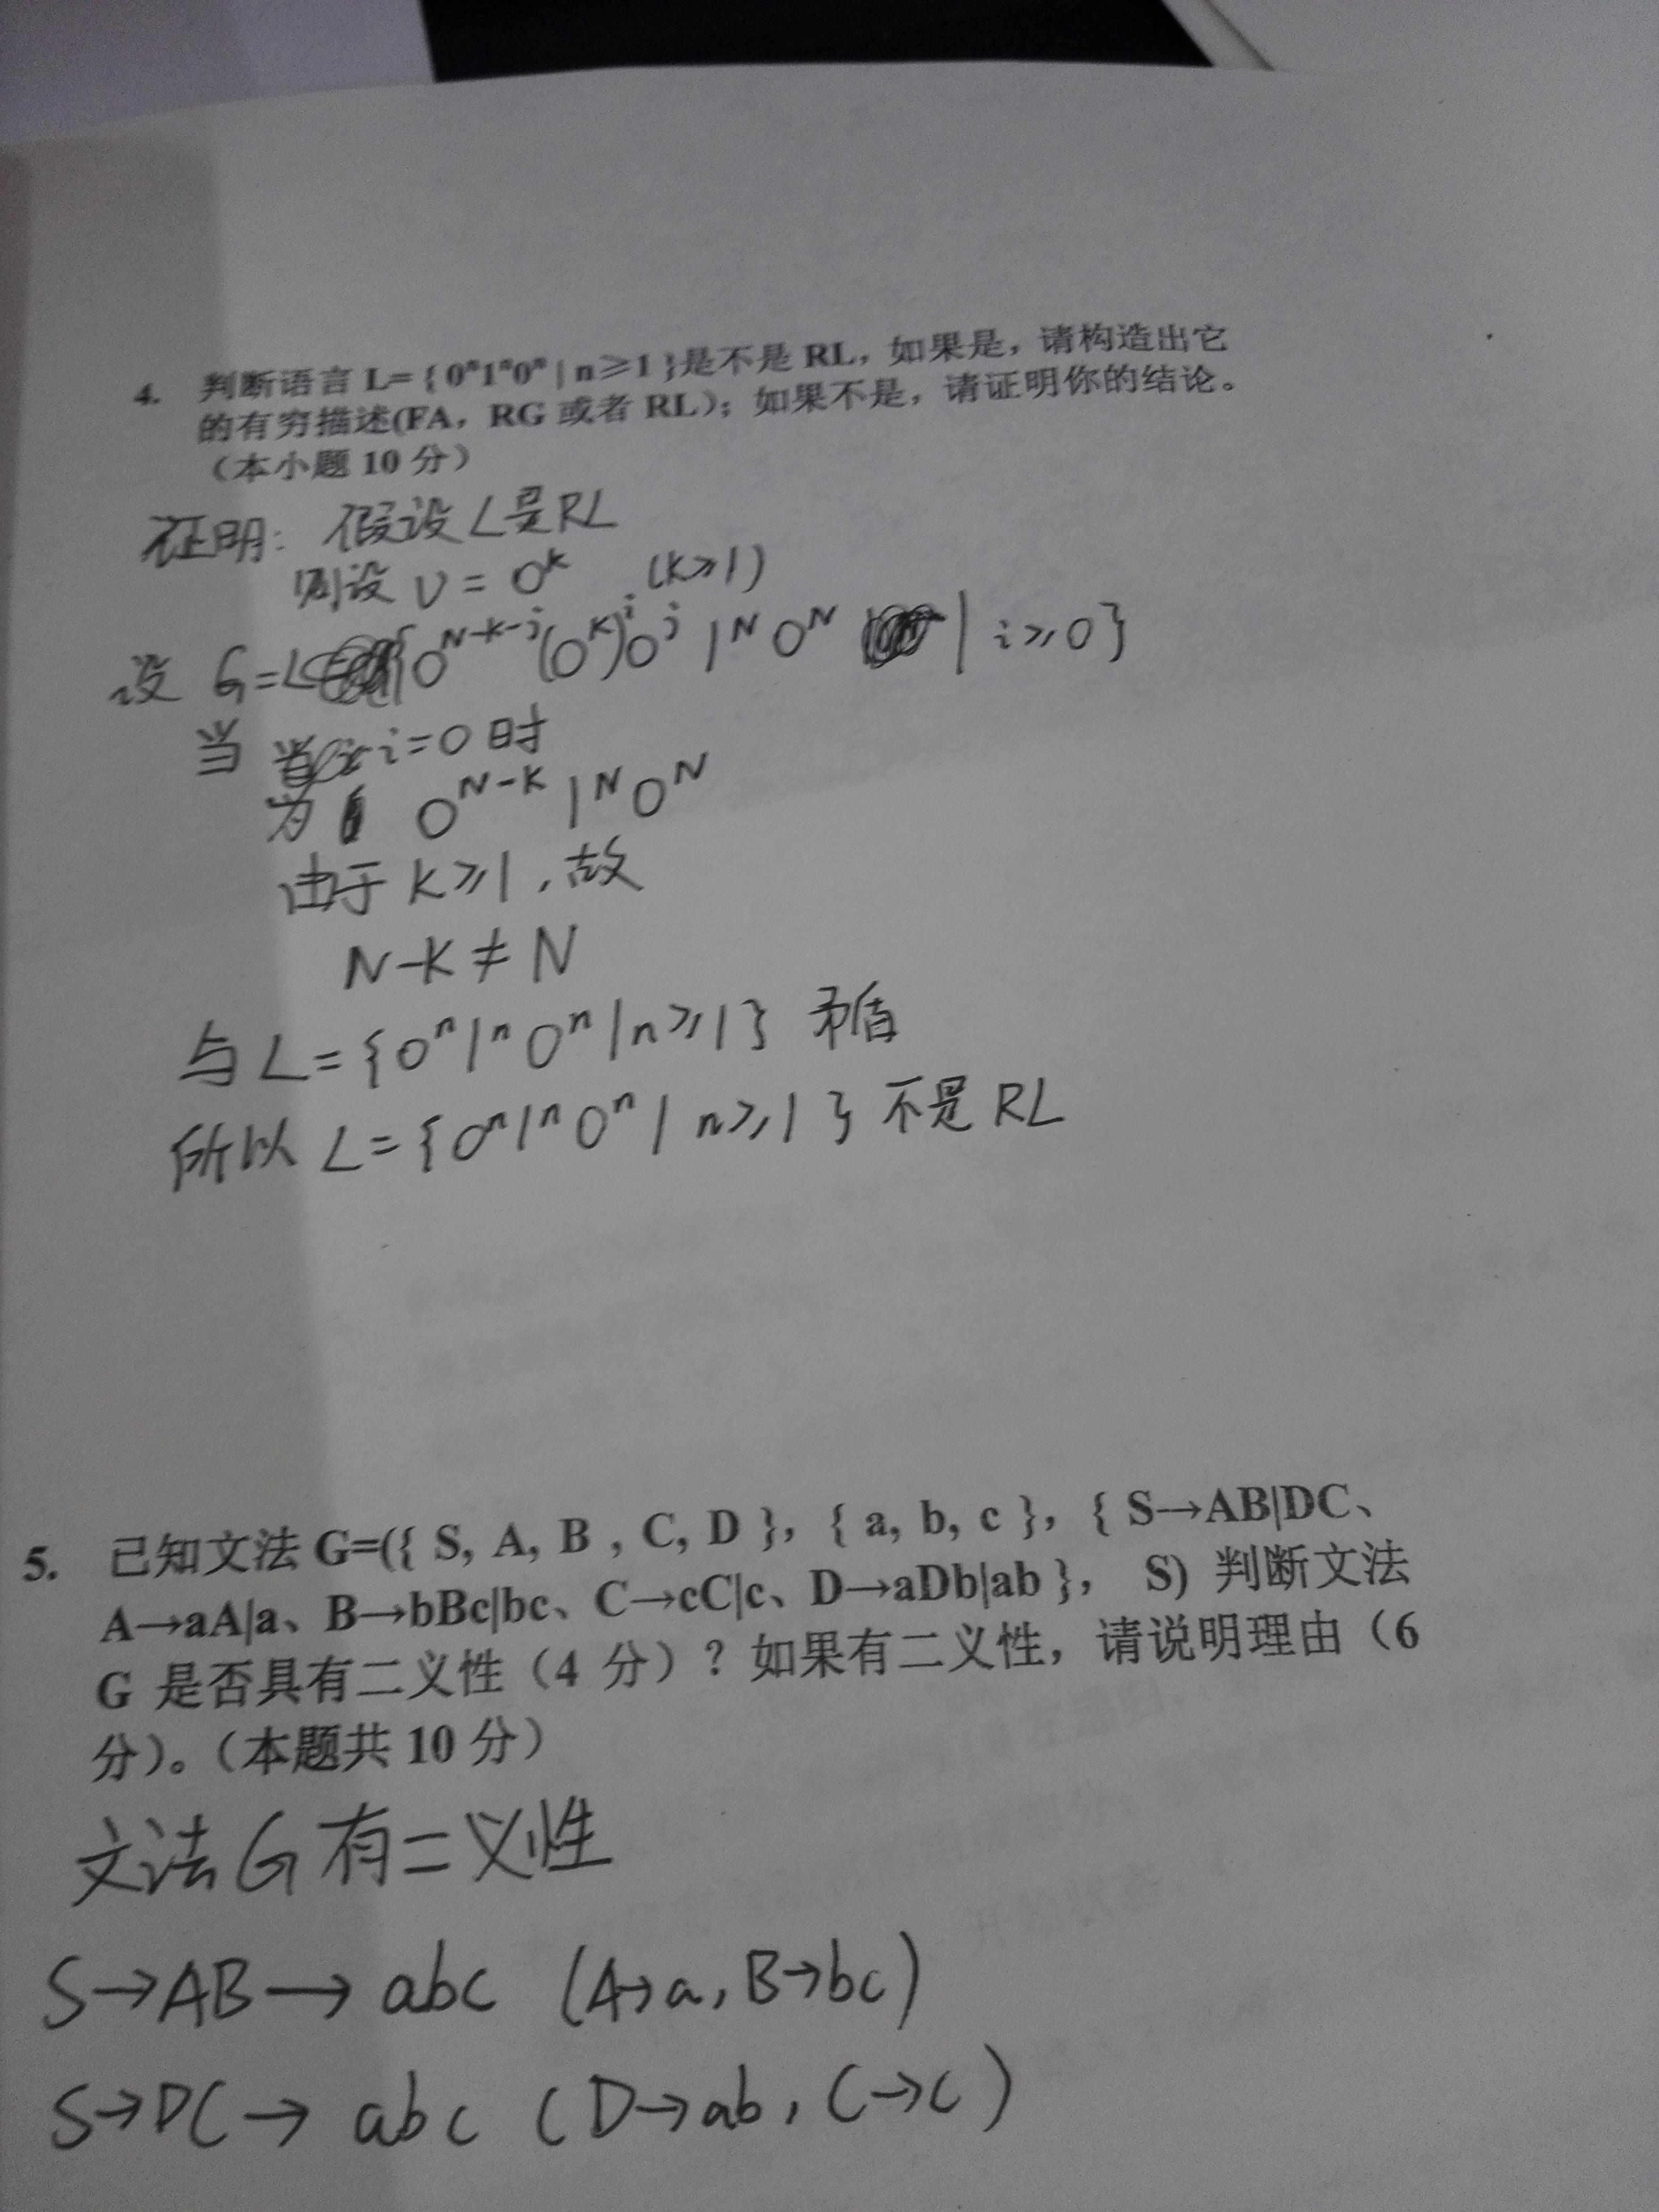 4. 判断语言 L={ 0ⁿ1ⁿ0ⁿ | n≥1 }是不是 RL，如果是，请构造出它
的有穷描述(FA，RG 或者 RL)；如果不是，请证明你的结论。
（本小题 10 分）
证明: 假设 L是RL
则设 v = 0^k (k≥1)
设 G=L {0^{N-k-j}(0^k)^i 0^j 1^N 0^N | i≥0}
当 i=0时
为 0^{N-k} 1^N 0^N
由于 k≥1,故
N-k ≠ N
与 L={0ⁿ1ⁿ0ⁿ|n≥1} 矛盾
所以 L={0ⁿ1ⁿ0ⁿ| n≥1} 不是 RL
5. 已知文法 G=({ S, A, B , C, D }, { a, b, c }, { S→AB|DC、
A→aA|a、B→bBc|bc、C→cC|c、D→aDb|ab }, S) 判断文法
G 是否具有二义性（4 分）？如果有二义性，请说明理由（6
分）。（本题共 10 分）
文法 G 有二义性
S→AB→ abc (A→a, B→bc)
S→DC→ abc (D→ab, C→c)